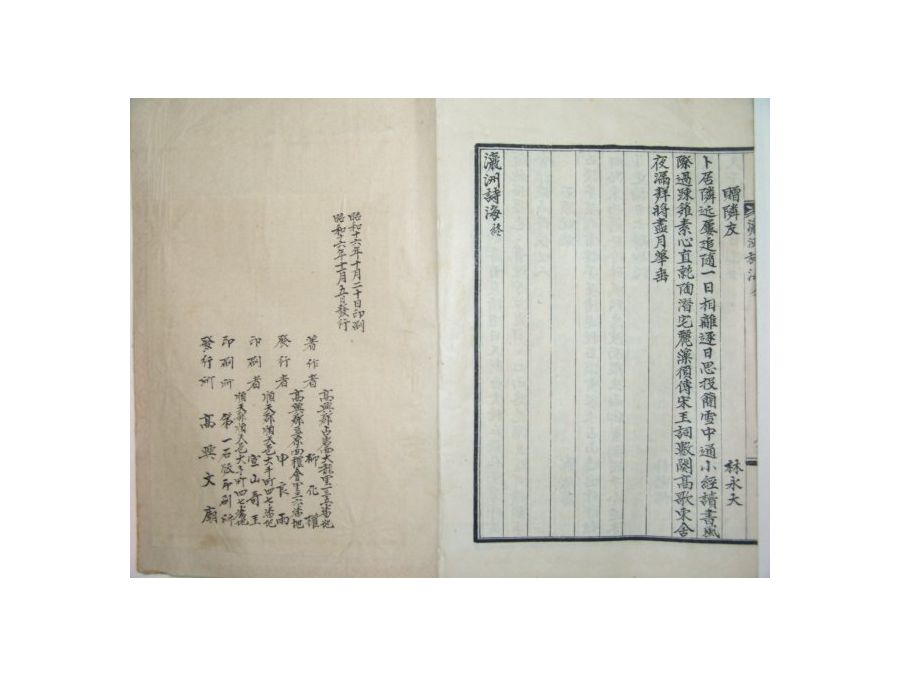 贈隣友
林永大
卜居隣近屢追隨一日相離逐日思投簡雪中通小經讀書風
際過踈籬素心直就陶潛宅麗藻須傳宋玉詞數闋高歌東舍
夜漏鮮將盡月華
瀛洲詩海終
昭和十六年十月二十日印刷
昭和十六年十一月五日發行
高興郡占岩面大龍里一三五番地
著作者 柳花權
高興郡豆原面禮會里三六番地
發行者 申良雨
順天郡順天邑大手町四七番地
印刷者 宝山奇玉
順天郡順天邑大手町四七番地
印刷所 第一石版印刷所
發行所 高興文廟